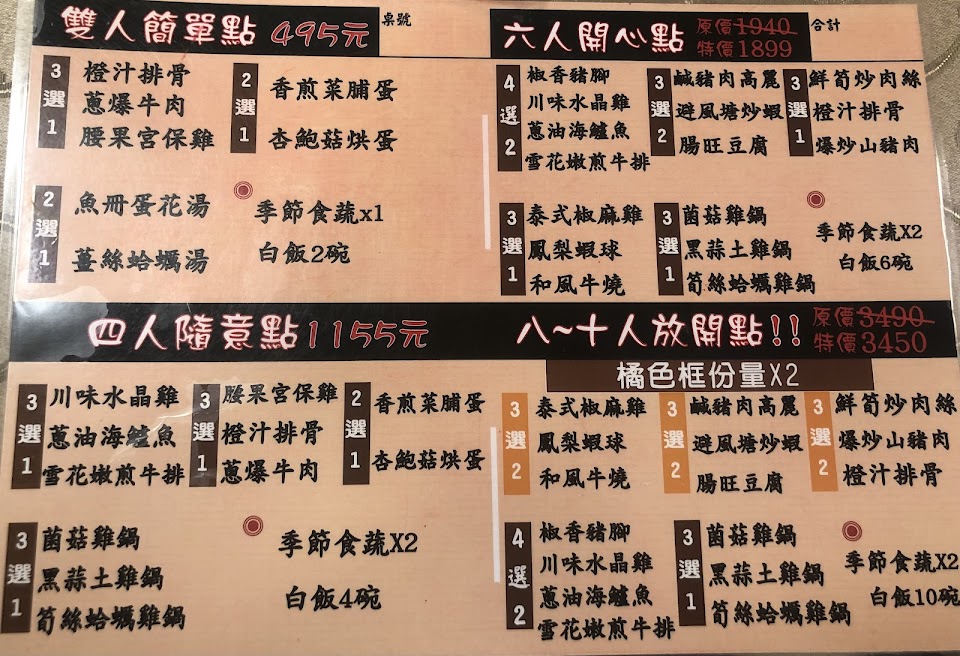 雙人簡單點 495元
桌號
3選1
橙汁排骨
蔥爆牛肉
腰果宮保雞
2選1
香煎菜脯蛋
杏鮑菇烘蛋
2選1
魚冊蛋花湯
薑絲蛤蠣湯
季節食蔬x1
白飯2碗
六人開心點 原價1940
特價1899
合計
4選2
椒香豬腳
川味水晶雞
蔥油海鱸魚
雪花嫩煎牛排
3選2
鹹豬肉高麗
避風塘炒蝦
腸旺豆腐
3選1
鮮筍炒肉絲
橙汁排骨
爆炒山豬肉
3選1
泰式椒麻雞
鳳梨蝦球
和風牛燒
3選1
菌菇雞鍋
黑蒜土雞鍋
筍絲蛤蠣雞鍋
季節食蔬X2
白飯6碗
四人隨意點1155元
3選1
川味水晶雞
蔥油海鱸魚
雪花嫩煎牛排
3選1
腰果宮保雞
橙汁排骨
蔥爆牛肉
2選1
香煎菜脯蛋
杏鮑菇烘蛋
3選1
菌菇雞鍋
黑蒜土雞鍋
筍絲蛤蠣雞鍋
季節食蔬X2
白飯4碗
八~十人放開點!! 原價3490
特價3450
橘色框份量X2
3選2
泰式椒麻雞
鳳梨蝦球
和風牛燒
3選2
鹹豬肉高麗
避風塘炒蝦
腸旺豆腐
3選2
鮮筍炒肉絲
爆炒山豬肉
橙汁排骨
4選2
椒香豬腳
川味水晶雞
蔥油海鱸魚
雪花嫩煎牛排
3選1
菌菇雞鍋
黑蒜土雞鍋
筍絲蛤蠣雞鍋
季節食蔬X2
白飯10碗